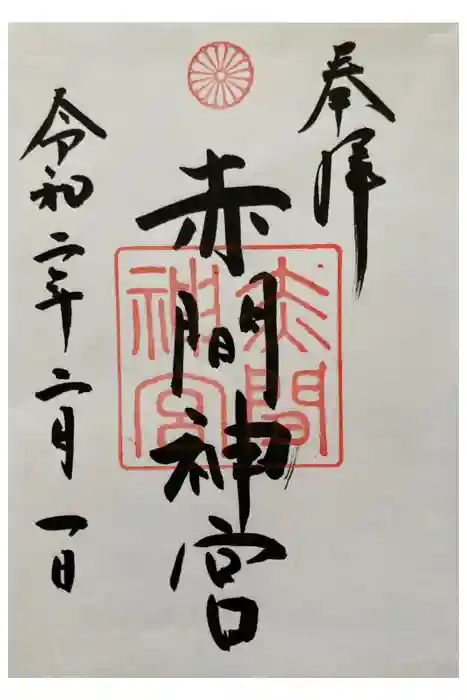 奉拝
赤間神宮
赤間神宮
令和二年二月一日